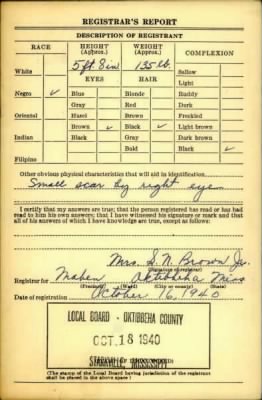 REGISTRAR'S REPORT
DESCRIPTION OF REGISTRANT
RACE HEIGHT (Approx.) WEIGHT (Approx.) COMPLEXION
5 ft 8 in 135 lb.
White Sallow
EYES HAIR Light
Negro ✓ Blue Blonde Ruddy
Gray Red Dark
Oriental Hazel Brown Freckled
Brown ✓ Black ✓ Light brown
Indian Black Gray Dark brown
Bald Black ✓
Filipino
Other obvious physical characteristics that will aid in identification
Small scar by right eye
I certify that my answers are true; that the person registered has read or has had
read to him his own answers; that I have witnessed his signature or mark and that
all of his answers of which I have knowledge are true, except as follows:
Mrs. S. N. Brown Jr.
(Signature of registrar)
Registrar for Maben Oktibbeha Miss
(Precinct) (Ward) (City or county) (State)
Date of registration October 16, 1940
LOCAL BOARD - OKTIBBEHA COUNTY
OCT 18 1940
STARKVILLE, MISSISSIPPI
(The stamp of the Local Board having jurisdiction of the registrant
shall be placed in the above space)